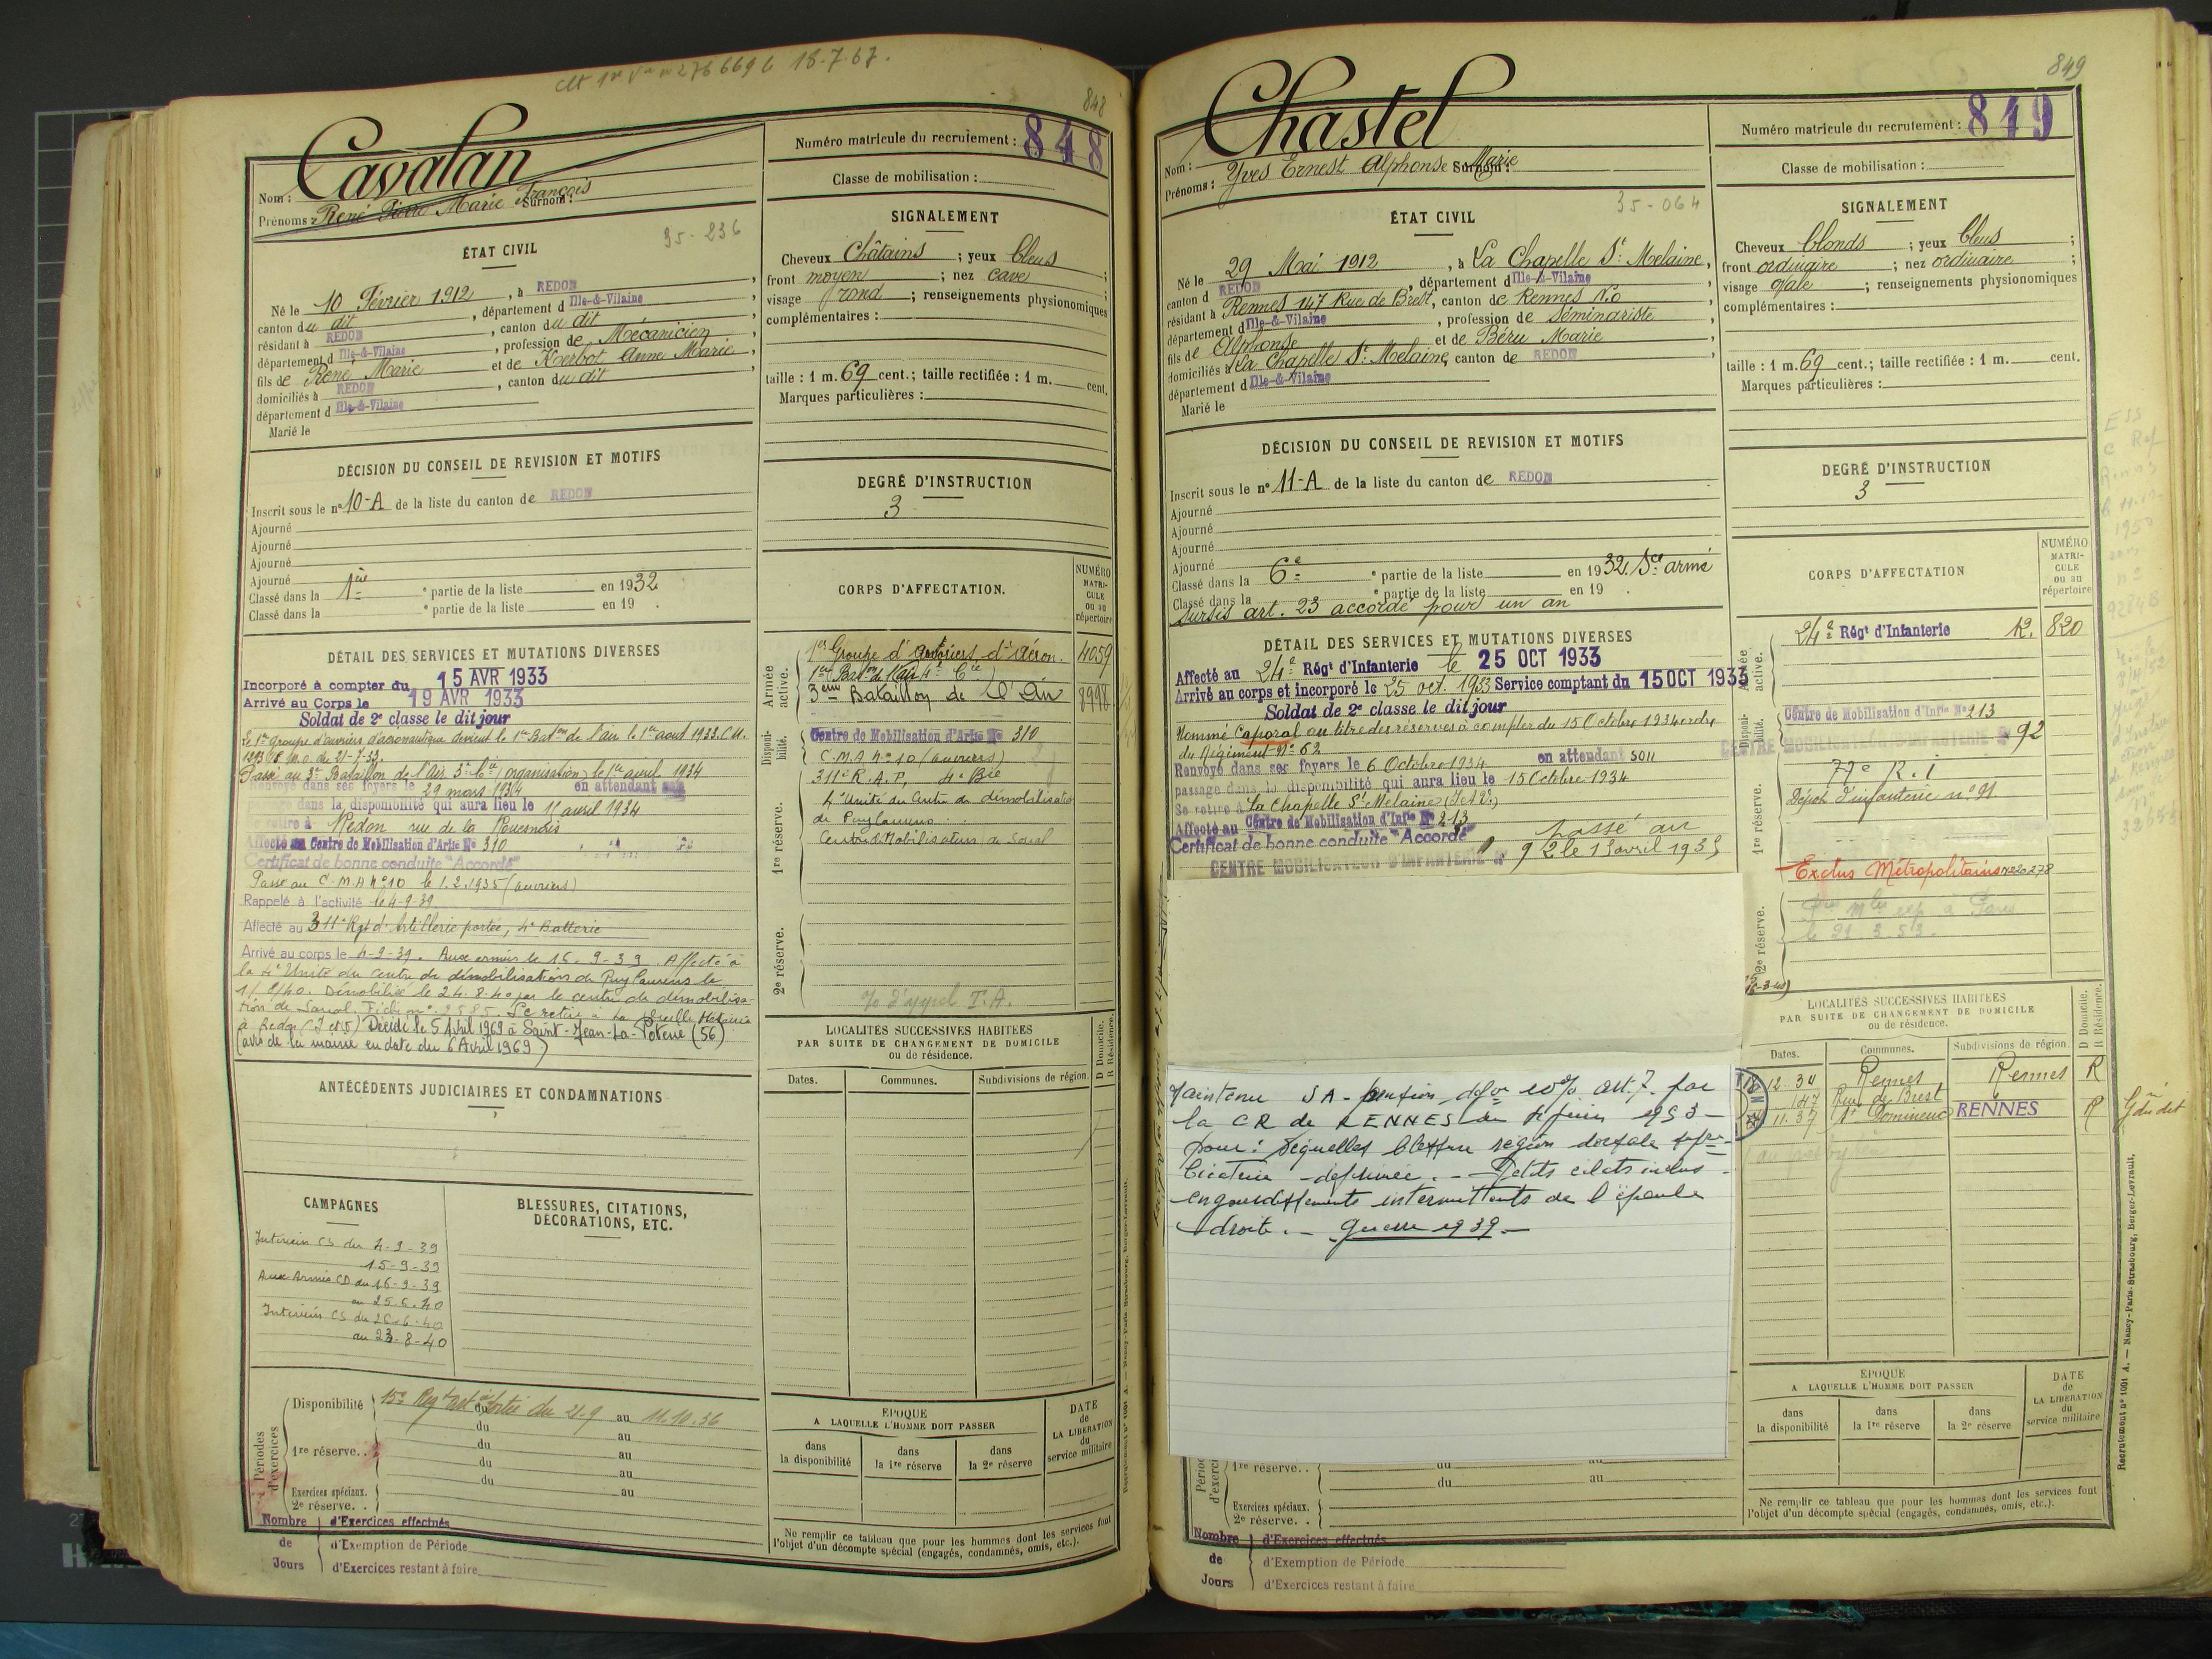 848
Cavalan
Nom :
Prénoms : René Pierre Marie François
Surnom :
Numéro matricule du recrutement : 848
Classe de mobilisation :
95-236
ÉTAT CIVIL
Né le 10 Février 1912, à REDON
canton du dit, département d Ille-&-Vilaine
résidant à REDON, canton du dit
département d Ille-&-Vilaine, profession de Mécanicien
fils de René Marie et de Kerbot Anne Marie
domiciliés à REDON, canton du dit
département d Ille-&-Vilaine
Marié le
SIGNALEMENT
Cheveux Châtains ; yeux bleus ;
front moyen ; nez cave ;
visage rond ; renseignements physionomiques
complémentaires :
taille : 1 m. 69 cent. ; taille rectifiée : 1 m. cent.
Marques particulières :
DÉCISION DU CONSEIL DE REVISION ET MOTIFS
Inscrit sous le n° 10-A de la liste du canton de REDON
Ajourné
Ajourné
Ajourné
Ajourné
Classé dans la 1ère e partie de la liste en 1932
Classé dans la e partie de la liste en 19 .
DEGRÉ D'INSTRUCTION
3
DÉTAIL DES SERVICES ET MUTATIONS DIVERSES
Incorporé à compter du 15 AVR 1933
Arrivé au Corps le 19 AVR 1933
Soldat de 2e classe le dit jour
Le 1er Groupe d'ouvriers d'aéronautique devient le 1er Baton de l'air le 1er août 1933. C.M.
Passé au 3e Bataillon de l'Air 3e Cie (organisation) le 1er avril 1934
Renvoyé dans ses foyers le 29 mars 1934 en attendant son
passage dans la disponibilité qui aura lieu le 15 avril 1934
Se retire à Redon rue de la
Affecté au Centre de Mobilisation d'Artie N° 310
Certificat de bonne conduite "Accordé"
Passé au C.M.A n° 10 le 1.2.1935 (ouvriers)
Rappelé à l'activité le 4-9-39
Affecté au 311e Rgt d'Artillerie portée, 4e Batterie
Arrivé au corps le 4-9-39. Aux armées le 16.9-39. Affecté à
la 4e Unité du centre de démobilisation de Puylaurens le
Démobilisé le 24.8.40 par le centre de démobilisa-
tion de
à Redon (I et V) Décédé le 5 Avril 1969 à Saint-Jean-La-Poterie (56)
(avis de la mairie en date du 6 Avril 1969)
CORPS D'AFFECTATION.
NUMÉRO MATRICULE ou au répertoire
Armée active.
1er Groupe d'ouvriers d'Aéron. 4059
1er Baton de l'air 4e Cie
3ème Bataillon de l'Air 8998
Disponibilité.
Centre de Mobilisation d'Artie N° 310
C.M.A n° 10 (ouvriers)
311e R.A.P. 4e Bie
1re réserve.
4e Unité du Centre de démobilisation
de Puylaurens
Centre de Mobilisation
2e réserve.
ANTÉCÉDENTS JUDICIAIRES ET CONDAMNATIONS
CAMPAGNES
Intérieur CS du 4-9-39
15-9-39
Aux Armées CD du 16-9-39
au 25-6-40
Intérieur CS du 26-6-40
au 23-8-40
BLESSURES, CITATIONS, DÉCORATIONS, ETC.
LOCALITÉS SUCCESSIVES HABITÉES
PAR SUITE DE CHANGEMENT DE DOMICILE
ou de résidence.
Dates.
Communes.
Subdivisions de région.
D Domicile.
R Résidence.
Périodes d'exercices
Disponibilité du 21.9 au 11.10.36
1re réserve. . du au
du au
du au
du au
Exercices spéciaux.
2e réserve. . au
Nombre de Jours
d'Exercices effectués
d'Exemption de Période
d'Exercices restant à faire
ÉPOQUE
A LAQUELLE L'HOMME DOIT PASSER
dans la disponibilité
dans la 1re réserve
dans la 2e réserve
DATE de LA LIBÉRATION du service militaire
Ne remplir ce tableau que pour les hommes dont les services font
l'objet d'un décompte spécial (engagés, condamnés, omis, etc.).
849
Chastel
Nom :
Prénoms : Yves Ernest Alphonse Marie
Surnom :
Numéro matricule du recrutement : 849
Classe de mobilisation :
35-064
ÉTAT CIVIL
Né le 29 Mai 1912, à La Chapelle St Melaine,
canton d REDON, département d Ille-&-Vilaine
résidant à Rennes 147 Rue de Brest, canton de Rennes N.O
département d Ille-&-Vilaine, profession de Séminariste
fils de Alphonse et de Béru Marie
domiciliés à La Chapelle St Melaine, canton de REDON
département d Ille-&-Vilaine
Marié le
SIGNALEMENT
Cheveux blonds ; yeux bleus ;
front ordinaire ; nez ordinaire ;
visage ovale ; renseignements physionomiques
complémentaires :
taille : 1 m. 69 cent. ; taille rectifiée : 1 m. cent.
Marques particulières :
DÉCISION DU CONSEIL DE REVISION ET MOTIFS
Inscrit sous le n° 11-A de la liste du canton de REDON
Ajourné
Ajourné
Ajourné
Ajourné
Classé dans la 6e e partie de la liste en 1932. Sce armé
Classé dans la e partie de la liste en 19 .
Sursis art. 23 accordé pour un an
DEGRÉ D'INSTRUCTION
3
DÉTAIL DES SERVICES ET MUTATIONS DIVERSES
Affecté au 24e Régt d'Infanterie le 25 OCT 1933
Arrivé au corps et incorporé le 25 oct. 1933 Service comptant du 15 OCT 1933
Soldat de 2e classe le dit jour
Nommé Caporal au titre des réserves à compter du 15 Octobre 1934 ordre
du Régiment N° 62
Renvoyé dans ses foyers le 6 Octobre 1934 en attendant son
passage dans la disponibilité qui aura lieu le 15 Octobre 1934
Se retire à La Chapelle St Melaine (I et V.)
Affecté au Centre de Mobilisation d'Infie N° 213
Certificat de bonne conduite "Accordé"
Passé au
CENTRE MOBILISATEUR D'INFANTERIE N° 92 le 15 avril 1935
CORPS D'AFFECTATION
NUMÉRO MATRICULE ou au répertoire
Armée active.
24e Régt d'Infanterie R. 820
Disponibilité.
Centre de Mobilisation d'Infie N° 213
CENTRE MOBILISATEUR D'INFANTERIE N° 92
1re réserve.
77e R.I
Dépôt d'infanterie n° 91
Exclus Métropolitains
2e réserve.
le 21 3 53.
Maintenu SA - pension défve 10% art. 7. par
la CR de RENNES du juin 1953 -
pour : Séquelles blessure région dorsale
Cicatrice déprimée. - Petits éclats inclus -
engourdissements intermittents de l'épaule
droite. - guerre 1939 -
LOCALITÉS SUCCESSIVES HABITÉES
PAR SUITE DE CHANGEMENT DE DOMICILE
ou de résidence.
Dates.
Communes.
Subdivisions de région.
D Domicile.
R Résidence.
12-34 Rennes Rennes R
147 Rue de Brest
11.37 St Domineuc RENNES R
1re réserve. . du au
du au
Exercices spéciaux.
2e réserve. .
Nombre de Jours
d'Exercices effectués
d'Exemption de Période
d'Exercices restant à faire
ÉPOQUE
A LAQUELLE L'HOMME DOIT PASSER
dans la disponibilité
dans la 1re réserve
dans la 2e réserve
DATE de LA LIBÉRATION du service militaire
Ne remplir ce tableau que pour les hommes dont les services font
l'objet d'un décompte spécial (engagés, condamnés, omis, etc.).
Recrutement n° 1001 A. — Nancy-Paris-Strasbourg, Berger-Levrault.